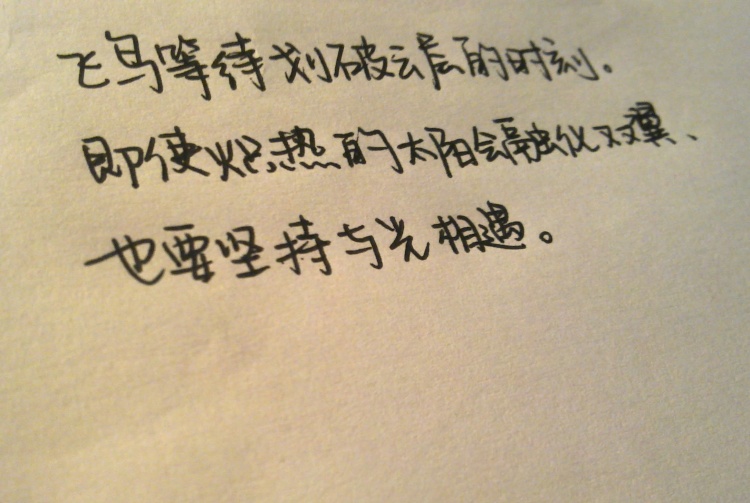 飞鸟等待划破云层的时刻。
即使炽热的太阳会融化双翼、
也要坚持与光相遇。